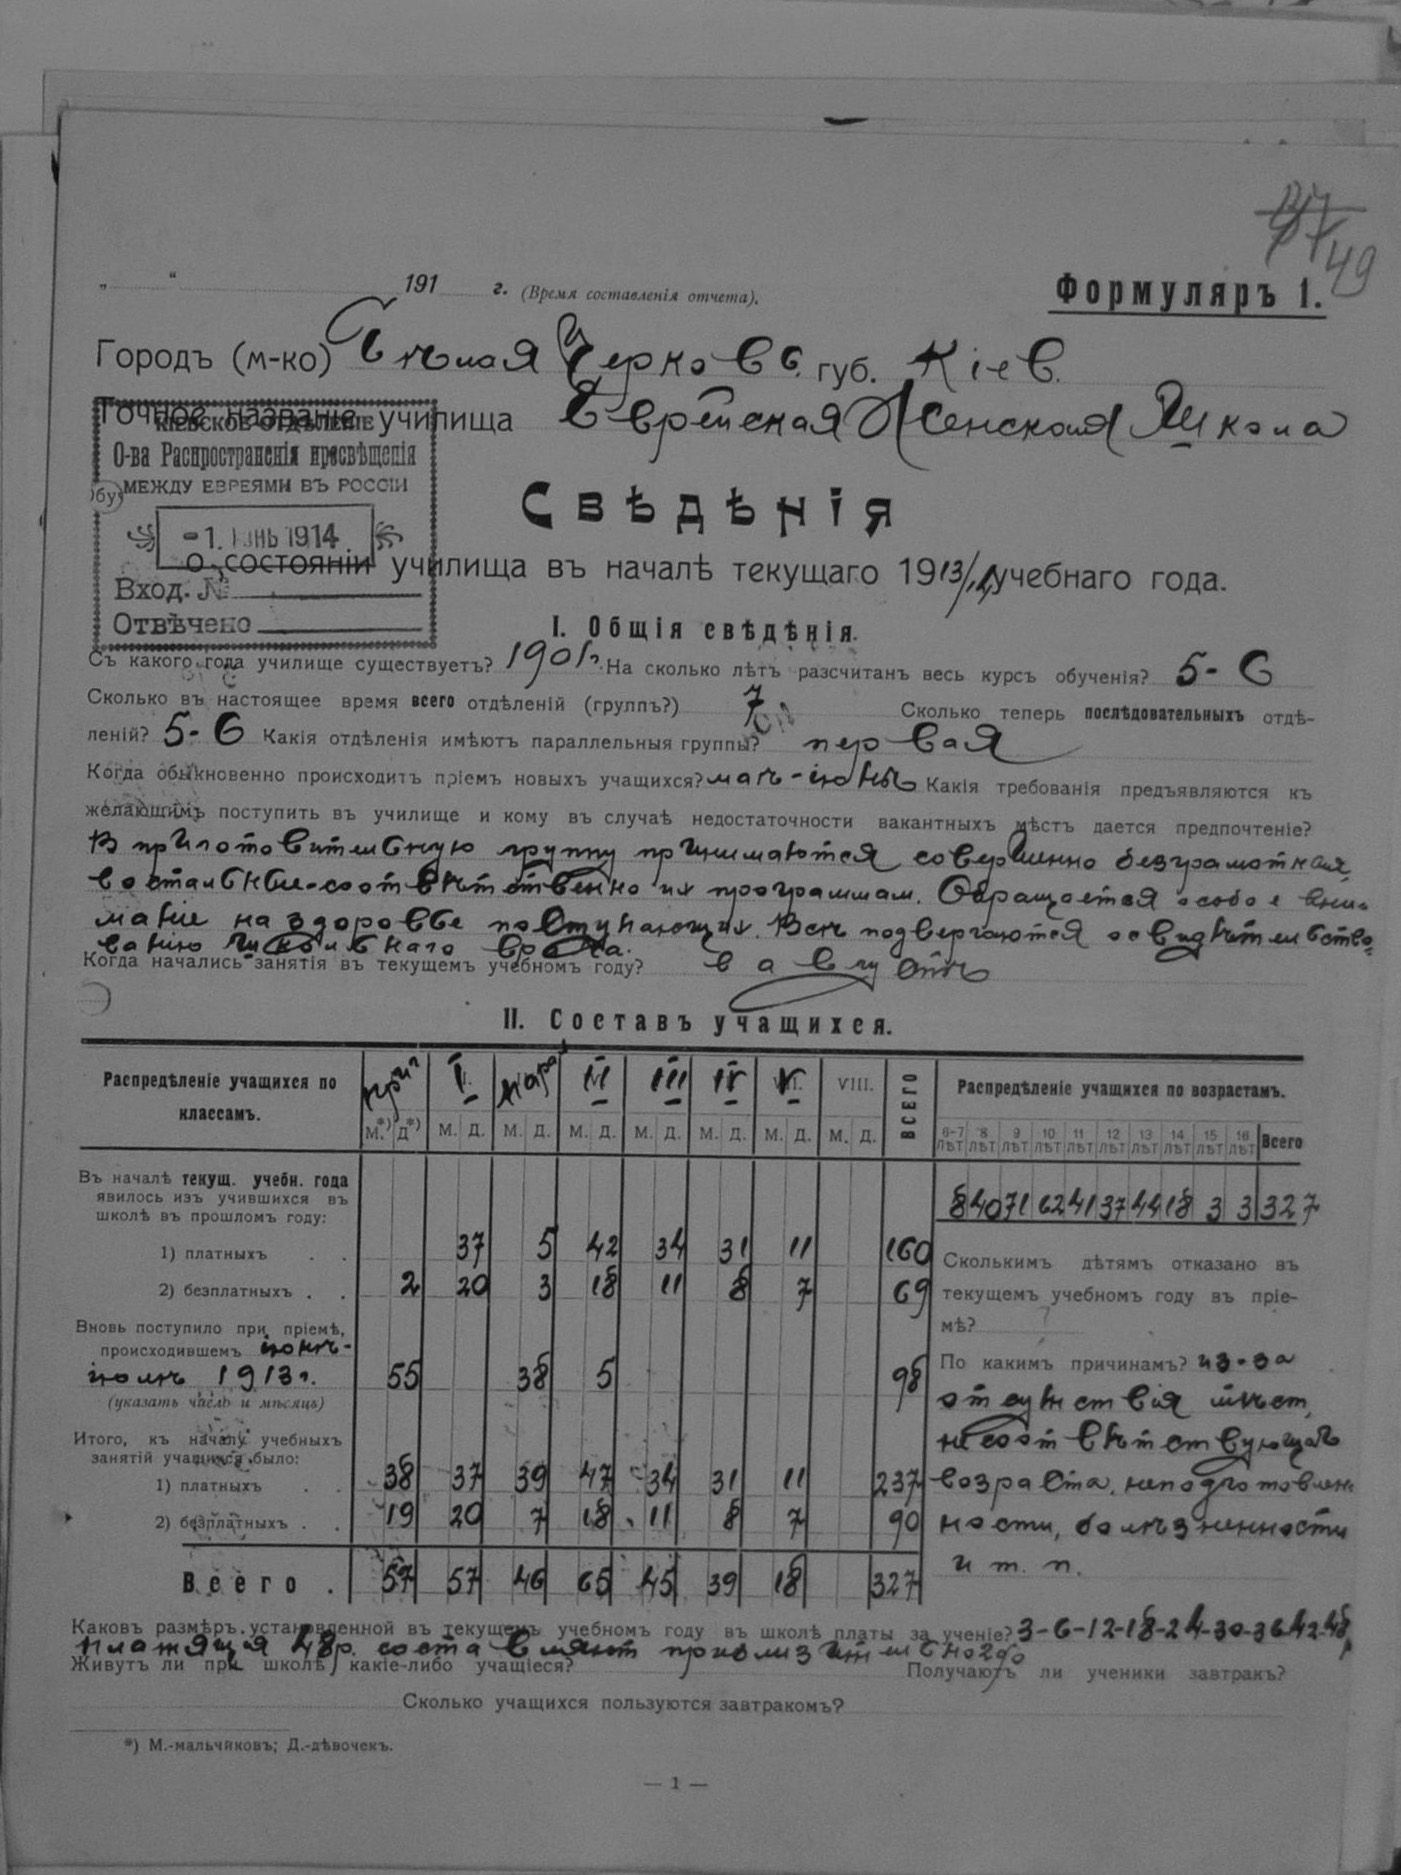 49
„ “ 191 г. (Время составленія отчета).
Формуляръ 1.
Городъ (м-ко) Бѣлая Церковь губ. Кіев.
Точное названіе училища Еврейская Женская Школа
КІЕВСКОЕ ОТДѢЛЕНІЕ
О-ва Распространенія просвѣщенія
МЕЖДУ ЕВРЕЯМИ ВЪ РОССІИ
- 1. ІЮНЬ 1914
Вход. №
Отвѣчено
Свѣдѣнія
о состояніи училища въ началѣ текущаго 1913/14 учебнаго года.
I. Общія свѣдѣнія.
Съ какого года училище существуетъ? 1901 г. На сколько лѣтъ разсчитанъ весь курсъ обученія? 5-6
Сколько въ настоящее время всего отдѣленій (группъ?) 7 Сколько теперь послѣдовательныхъ отдѣ-
леній? 5-6 Какія отдѣленія имѣютъ параллельныя группы? первая
Когда обыкновенно происходитъ пріемъ новыхъ учащихся? маѣ-іюнѣ Какія требованія предъявляются къ
желающимъ поступить въ училище и кому въ случаѣ недостаточности вакантныхъ мѣстъ дается предпочтеніе?
В приготовительную группу принимаются совершенно безграмотныя,
в остальные-соотвѣтственно их программам. Обращается особое вни-
маніе на здоровье поступающих. Всѣ подвергаются освидѣтельство-
ванію школьнаго врача.
Когда начались занятія въ текущемъ учебномъ году? в августѣ
II. Составъ учащихся.
Распредѣленіе учащихся по классамъ. приг I пар II III IV V VIII. ВСЕГО Распредѣленіе учащихся по возрастамъ.
М.*) Д*) М. Д. М. Д. М. Д. М. Д. М. Д. М. Д. М. Д. 6-7 лѣт 8 лѣт 9 лѣт 10 лѣт 11 лѣт 12 лѣт 13 лѣт 14 лѣт 15 лѣт 16 лѣт Всего
Въ началѣ текущ. учебн. года
явилось изъ учившихся въ
школѣ въ прошломъ году:
8 40 71 62 41 37 44 18 3 3 327
1) платныхъ . . 37 5 42 34 31 11 160
2) безплатныхъ . . 2 20 3 18 11 8 7 69
Вновь поступило при пріемѣ,
происходившемъ іюнѣ-
іюлѣ 1913 г. 55 38 5 98
(указать число и мѣсяцъ)
Итого, къ началу учебныхъ
занятій учащихся было:
1) платныхъ . . 38 37 39 47 34 31 11 237
2) безплатныхъ . . 19 20 7 18 11 8 7 90
Всего . 57 57 46 65 45 39 18 327
Сколькимъ дѣтямъ отказано въ
текущемъ учебномъ году въ пріе-
мѣ? ?
По какимъ причинамъ? из-за
отсутствія мѣст,
несоотвѣтствующаго
возраста, неподготовлен-
ности, болѣзненности
и т. п.
Каковъ размѣръ установленной въ текущемъ учебномъ году въ школѣ платы за ученіе? 3-6-12-18-24-30-36-42-48 р.
платящія 48 р. составляют приблизительно 2%
Живутъ ли при школѣ какіе-либо учащіеся? Получаютъ ли ученики завтракъ?
Сколько учащихся пользуются завтракомъ?
*) М.-мальчиковъ; Д.-дѣвочекъ.
— 1 —